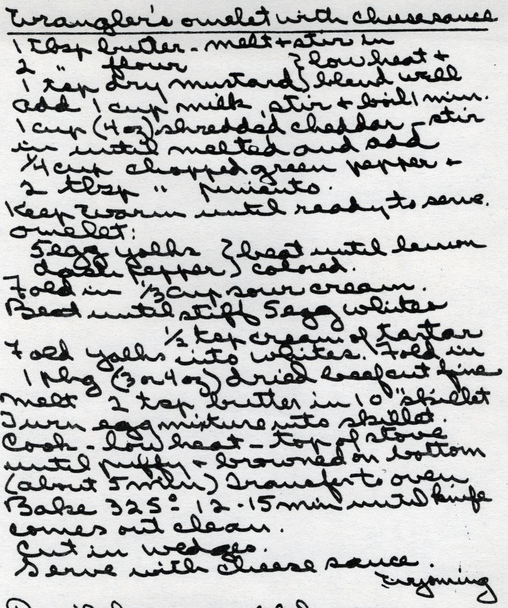 Wrangler's omelet with cheese sauce
1 tbsp butter - melt + stir in
2 " flour } low heat +
1 tsp dry mustard } blend well
add 1 cup milk, stir + boil 1 min.
1 cup (4 oz) shredded cheddar - stir
in until melted and add
1/4 cup chopped green pepper +
2 tbsp " pimiento.
Keep warm until ready to serve.
Omelet:
5 egg yolks } beat until lemon
dash pepper } colored.
Fold in 1/3 cup sour cream.
Beat until stiff 5 egg whites
1/2 tsp cream of tartar
Fold yolks into whites. Fold in
1 pkg (3 or 4 oz) dried beef cut fine
Melt 2 tsp butter in 10" skillet
Turn egg mixture into skillet.
Cook - low heat - top of stove
until puffy + browned on bottom
(about 5 min) Transfer to oven
Bake 325° 12-15 min until knife
comes out clean.
Cut in wedges.
Serve with cheese sauce.
Wyoming